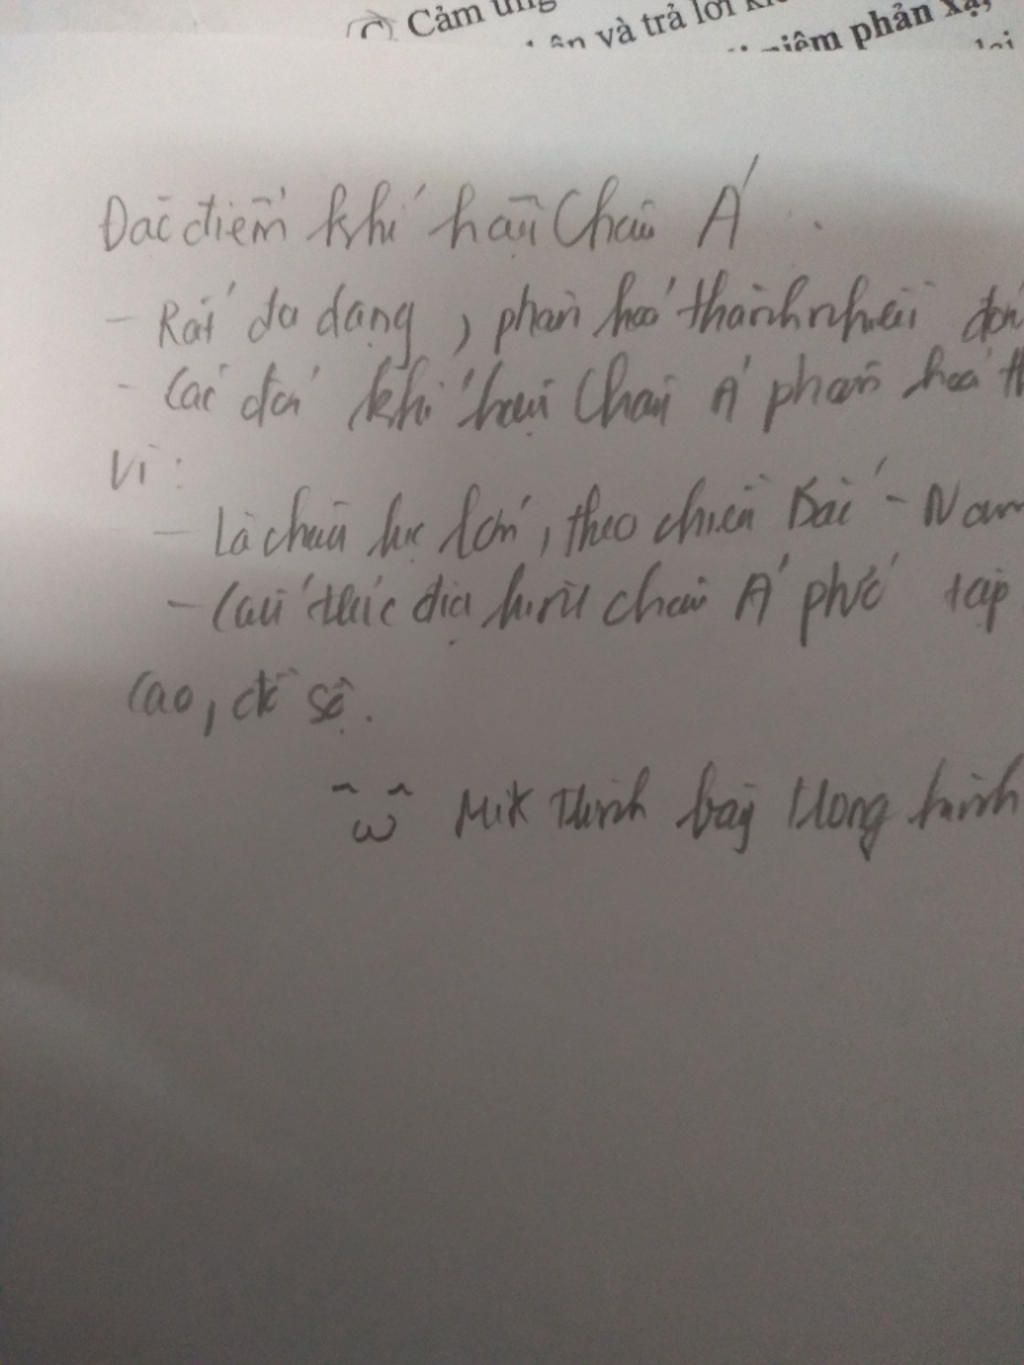 Cảm ứng
và trả lời
niệm phản xạ,
Đặc điểm khí hậu Châu Á
- Rất đa dạng, phân hoá thành nhiều đới
- Các đới khí hậu Châu Á phân hoá
vì:
- Là châu lục lớn, theo chiều Bắc - Nam
- Cấu trúc địa hình châu Á phức tạp
cao, đồ sộ.
^ω^ Mik trình bày trong hình